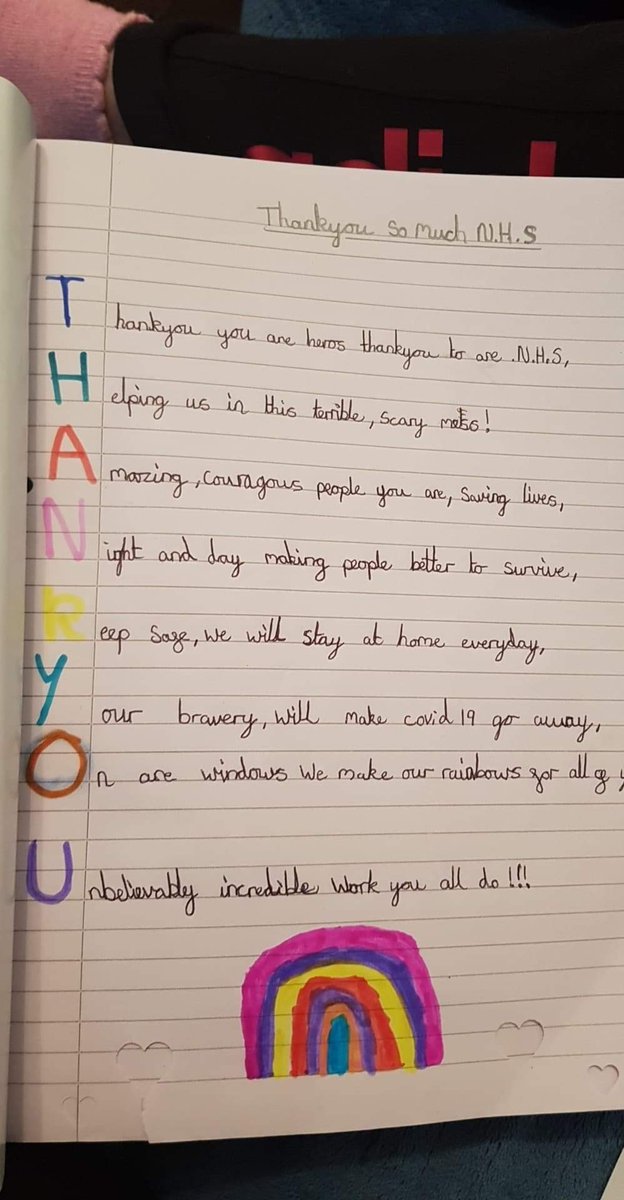 Thankyou so much N.H.S
Thankyou you are heros thankyou to are .N.H.S,
Helping us in this terrible, scary mess!
Amazing, couragous people you are, saving lives,
Night and day making people better to survive,
Keep safe, we will stay at home everyday,
Your bravery, will make covid 19 go away,
On are windows we make our rainbows for all of
Unbelievably incredible work you all do!!!